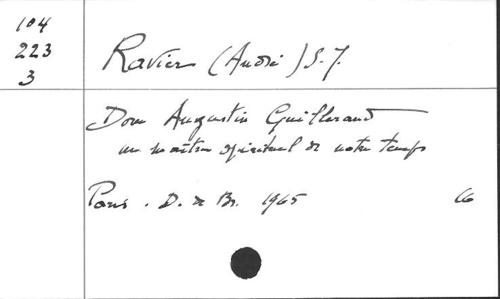 104
223
3
Ravier (André) S.J.
Dom Augustin Guillerand
un maître spirituel de notre temps
Paris. D. de Br. 1965 66